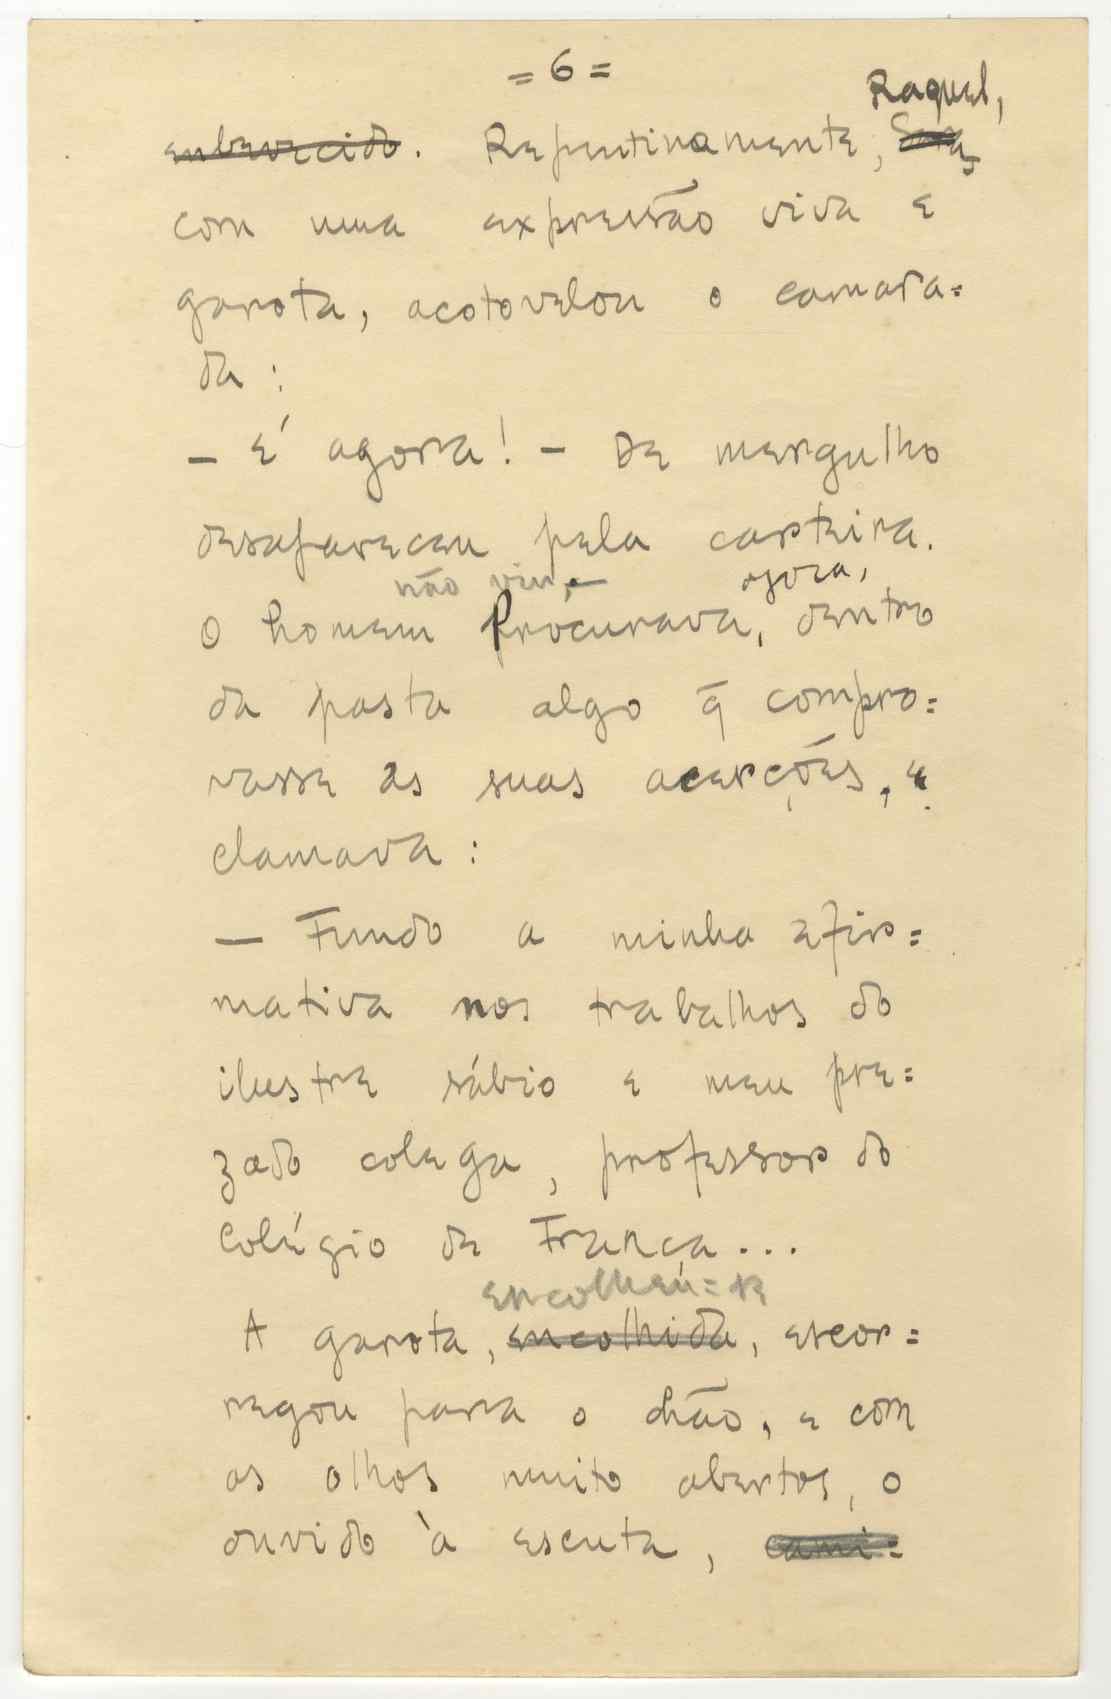 = 6 =
Raquel,
enbevecido. Repentinamente, Sara,
com uma expressão viva e
garota, acotovelou o camara=
da :
— É agora! — De mergulho
desapareceu pela carteira.
não viu, agora,
O homem Procurava, dentro
da pasta algo q̃ compro=
vasse as suas acerções, e
clamava :
— Fundo a minha afir=
mativa nos trabalhos do
ilustre sábio e meu pre=
zado colega, professor do
Colégio de França...
encolheu=se
A garota, encolhida, escor=
regou para o chão, e com
os olhos muito abertos, o
ouvido à escuta, cami=